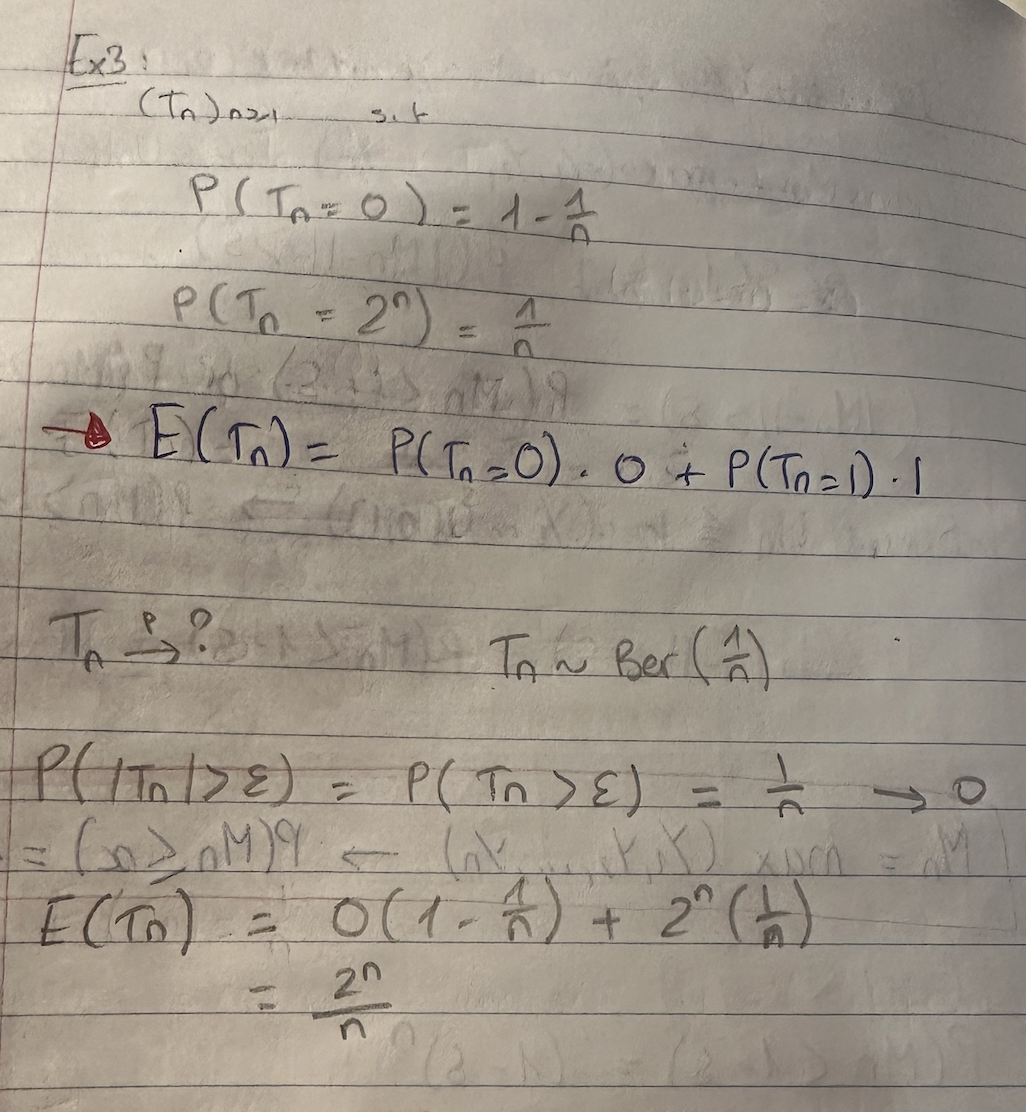 Ex3 :
(Tn)n≥1 s.t
P(Tn = 0) = 1 - 1/n
P(Tn = 2ⁿ) = 1/n
→ E(Tn) = P(Tn=0) . 0 + P(Tn=1) . 1
Tn →ᴾ ? Tn ~ Ber(1/n)
P(|Tn|>ε) = P(Tn >ε) = 1/n → 0
E(Tn) = 0(1 - 1/n) + 2ⁿ(1/n)
= 2ⁿ/n